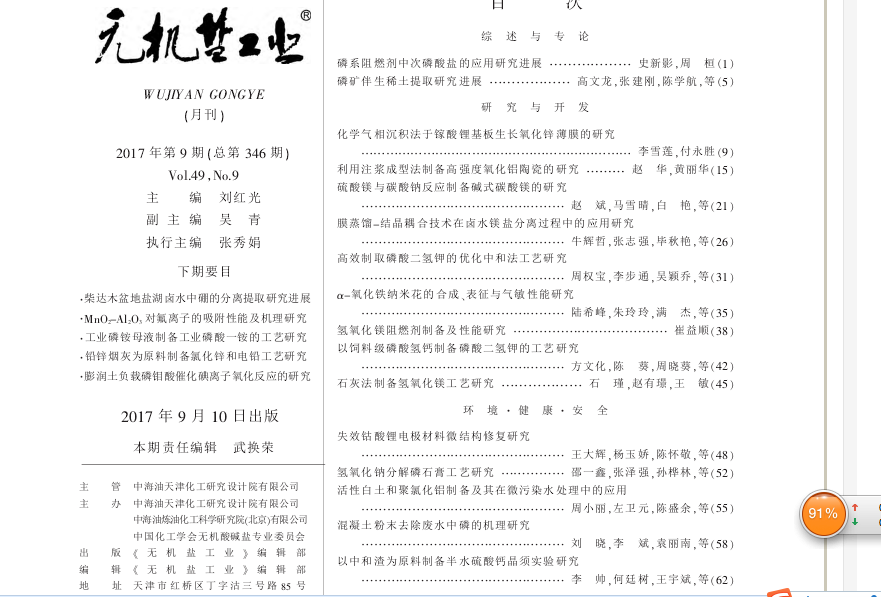 无机盐工业®
WUJIYAN GONGYE
(月刊)
2017 年第 9 期(总第 346 期)
Vol.49,No.9
主 编 刘红光
副 主 编 吴 青
执行主编 张秀娟
下期要目
·柴达木盆地盐湖卤水中硼的分离提取研究进展
·MnO2-Al2O3 对氟离子的吸附性能及机理研究
·工业磷铵母液制备工业磷酸一铵的工艺研究
·铅锌烟灰为原料制备氯化锌和电铅工艺研究
·膨润土负载磷钼酸催化碘离子氧化反应的研究
2017 年 9 月 10 日出版
本期责任编辑 武换荣
主 管 中海油天津化工研究设计院有限公司
主 办 中海油天津化工研究设计院有限公司
中海油炼油化工科学研究院(北京)有限公司
中国化工学会无机酸碱盐专业委员会
出 版 《无机盐工业》编辑部
编 辑 《无机盐工业》编辑部
地 址 天津市红桥区丁字沽三号路 85 号
目 次
综 述 与 专 论
磷系阻燃剂中次磷酸盐的应用研究进展 ……………… 史新影,周 桓(1)
磷矿伴生稀土提取研究进展 ……………… 高文龙,张建刚,陈学航,等(5)
研 究 与 开 发
化学气相沉积法于镓酸锂基板生长氧化锌薄膜的研究
……………… 李雪莲,付永胜(9)
利用注浆成型法制备高强度氧化铝陶瓷的研究 ……… 赵 华,黄丽华(15)
硫酸镁与碳酸钠反应制备碱式碳酸镁的研究
……………… 赵 斌,马雪晴,白 艳,等(21)
膜蒸馏-结晶耦合技术在卤水镁盐分离过程中的应用研究
……………… 牛辉哲,张志强,毕秋艳,等(26)
高效制取磷酸二氢钾的优化中和法工艺研究
……………… 周权宝,李步通,吴颖乔,等(31)
α-氧化铁纳米花的合成、表征与气敏性能研究
……………… 陆希峰,朱玲玲,满 杰,等(35)
氢氧化镁阻燃剂制备及性能研究 ……………… 崔益顺(38)
以饲料级磷酸氢钙制备磷酸二氢钾的工艺研究
……………… 方文化,陈 葵,周晓葵,等(42)
石灰法制备氢氧化镁工艺研究 ……………… 石 瑾,赵有璟,王 敏(45)
环 境 · 健 康 · 安 全
失效钴酸锂电极材料微结构修复研究
……………… 王大辉,杨玉娇,陈怀敬,等(48)
氢氧化钠分解磷石膏工艺研究 ………… 邵一鑫,张泽强,孙桦林,等(52)
活性白土和聚氯化铝制备及其在微污染水处理中的应用
……………… 周小丽,左卫元,陈盛余,等(55)
混凝土粉末去除废水中磷的机理研究
……………… 刘 晓,李 斌,袁丽南,等(58)
以中和渣为原料制备半水硫酸钙晶须实验研究
……………… 李 帅,何廷树,王宇斌,等(62)
91%